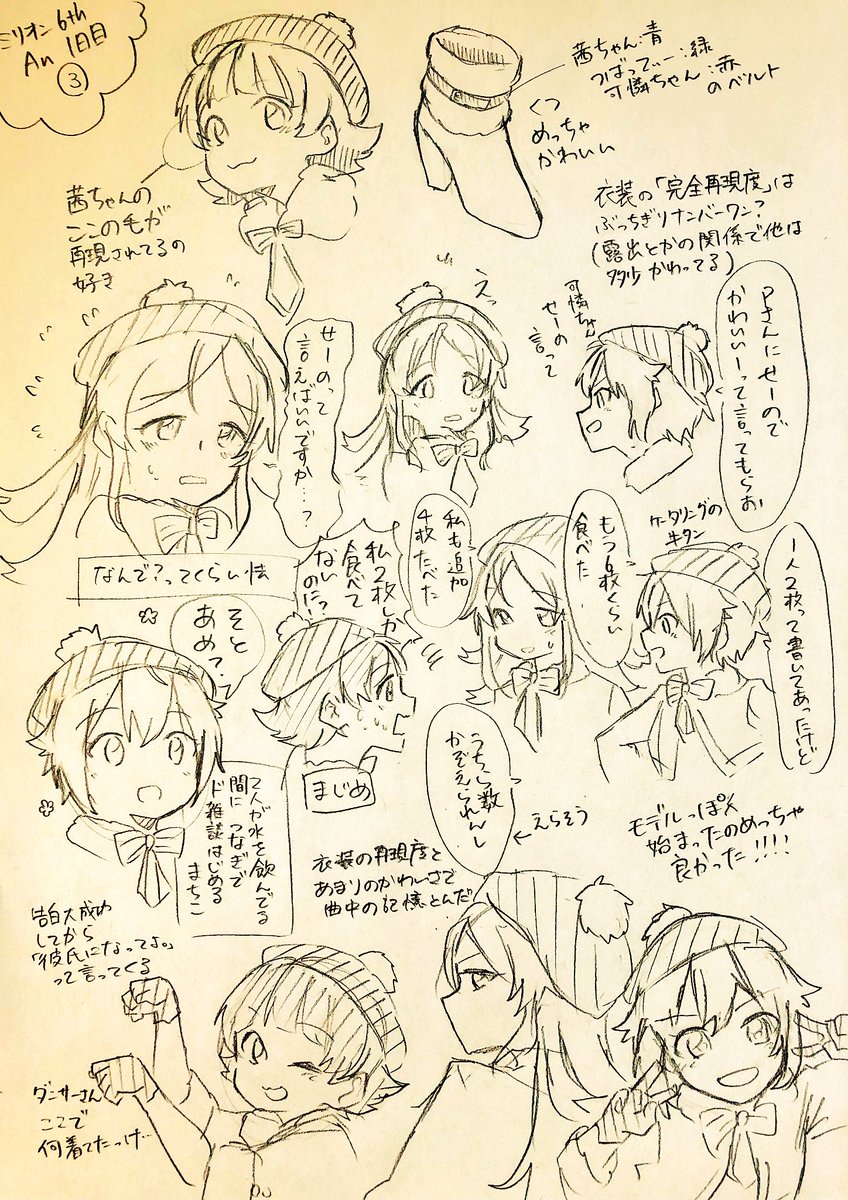 ミリオン6th
An 1日目
③
茜ちゃん:青
つばってぃー:緑
可憐ちゃん:赤
のベルト
くつ
めっちゃ
かわいい
茜ちゃんの
ここの毛が
再現されてるの
好き
衣装の「完全再現度」は
ぶっちぎりナンバーワン?
(露出とかの関係で他は
多少かわってる)
Pさんにせーので
かわいいーって言ってもらお
可憐ちゃん
せーの
言って
えっ
せーのって
言えばいいですか…?
なんで?ってくらい怯
ケータリングの
牛タン
1人2枚って書いてあったけど
もう6枚くらい
食べた
私も追加
4枚たべた
私2枚しか
食べて
ないのに?
まじめ
うちら数
かぞえられんし
←えらそう
そと
あめ?
2人が水を飲んでる
間に つなぎで
ド雑談はじめる
まちこ
衣装の再現度と
あまりのかわいさで
曲中の記憶とんだ
モデルっぽく
始まったのめっちゃ
良かった!!!!
告白大成功
してから
「彼氏になってよ。」
って言ってくる
ダンサーさん
ここで
何着てたっけ…